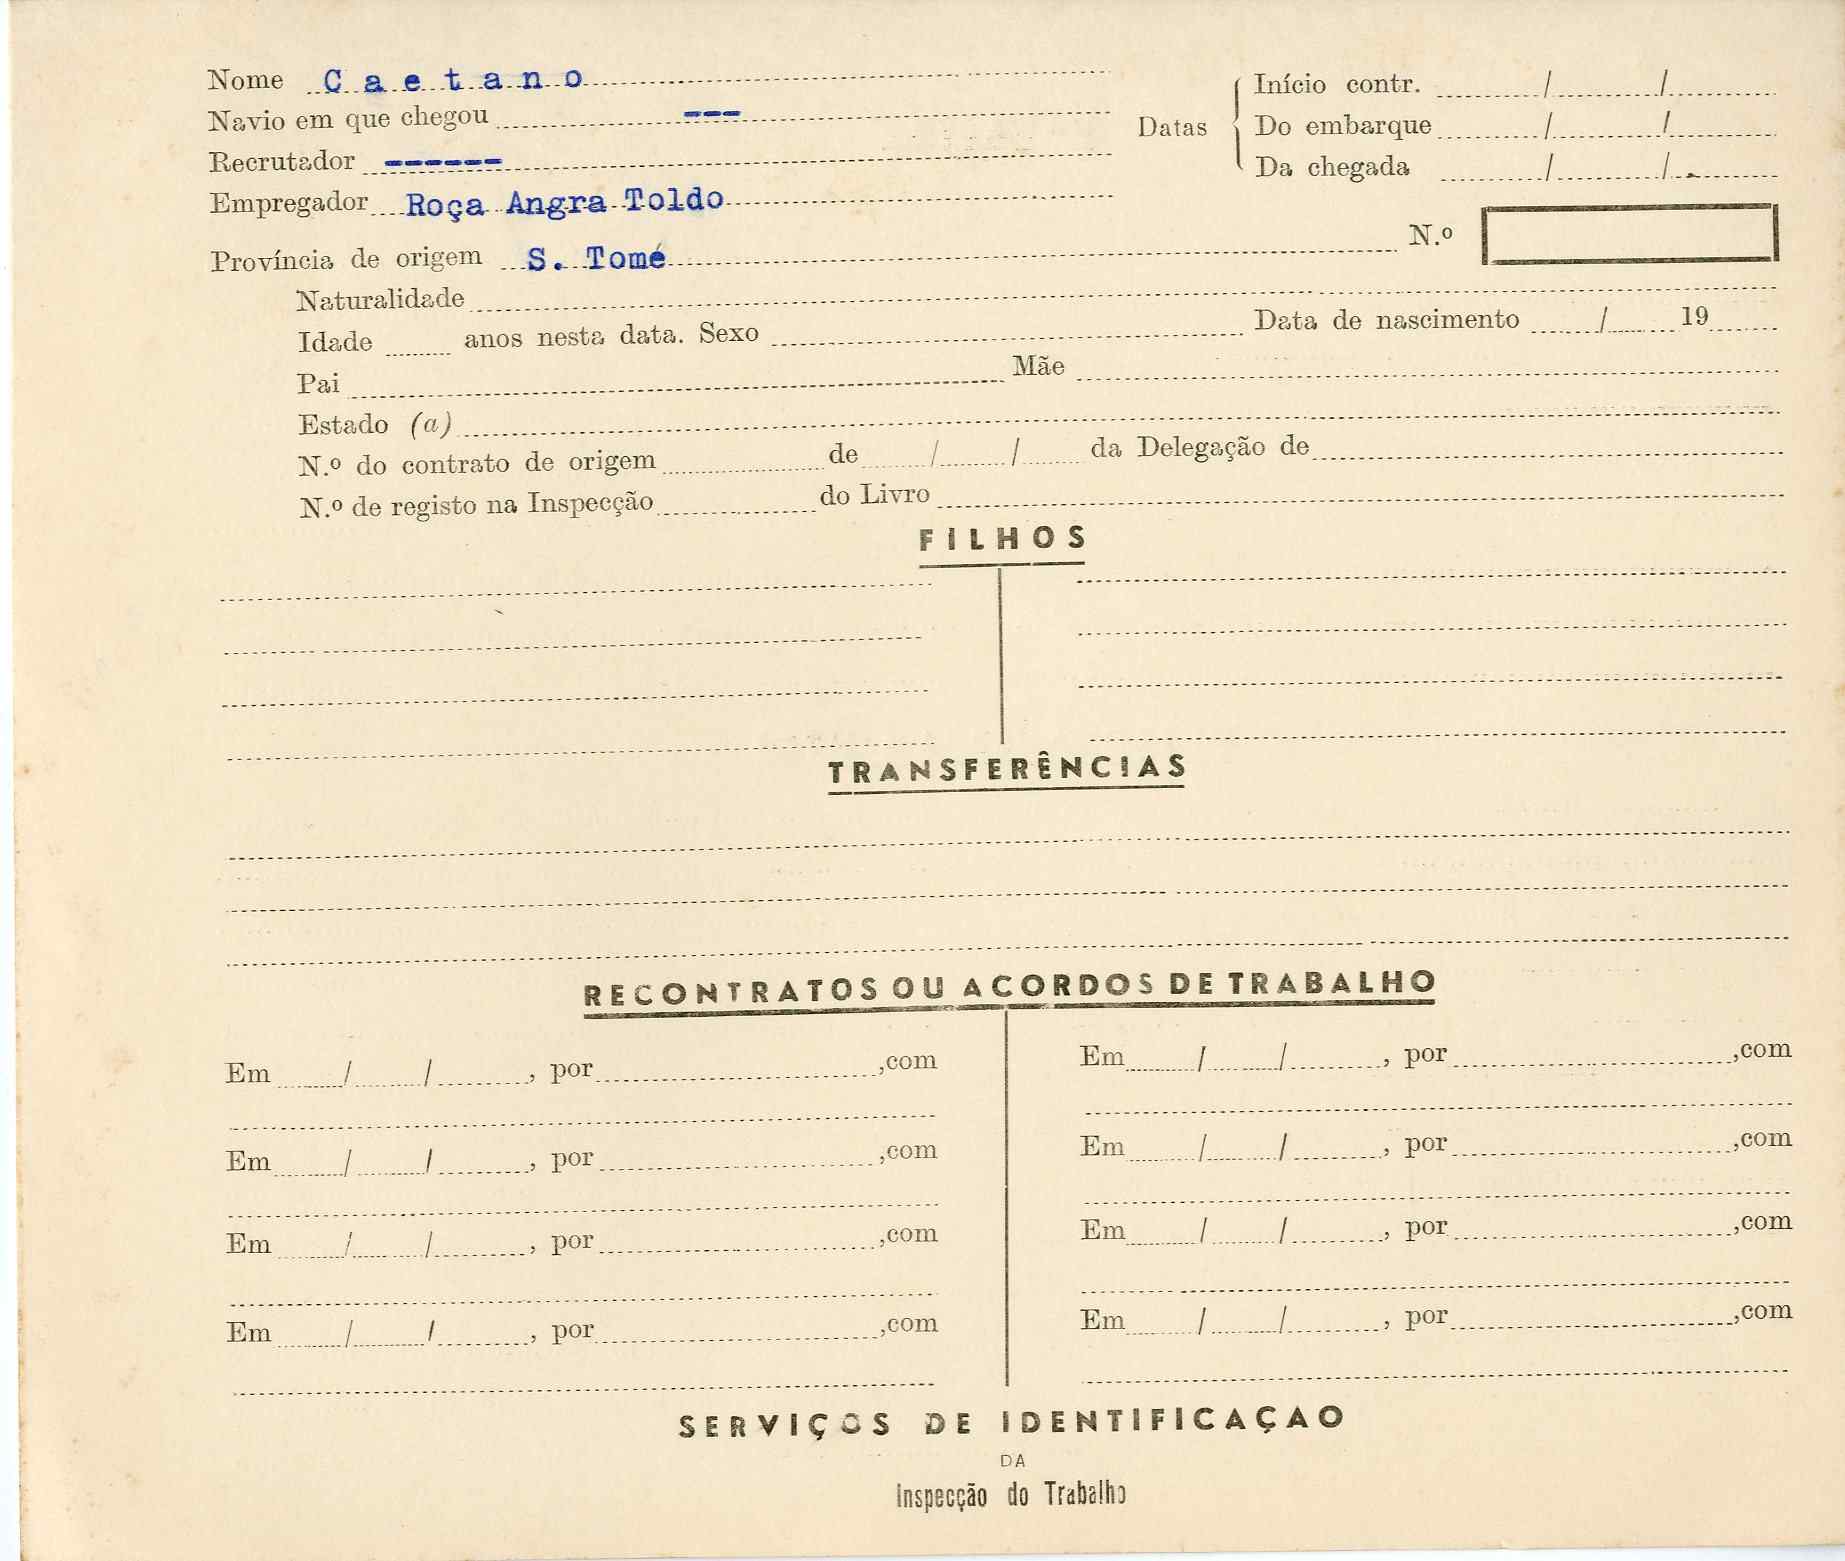 Nome C a e t a n o
Navio em que chegou ---
Recrutador ------
Empregador Roça Angra Toldo
Datas
Início contr. / /
Do embarque / /
Da chegada / /
Província de origem S. Tomé N.º
Naturalidade
Idade anos nesta data. Sexo Data de nascimento / 19
Pai Mãe
Estado (a)
N.º do contrato de origem de / / da Delegação de
N.º de registo na Inspecção do Livro
FILHOS
TRANSFERÊNCIAS
RECONTRATOS OU ACORDOS DE TRABALHO
Em / / , por ,com
Em / / , por ,com
Em / / , por ,com
Em / / , por ,com
Em / / , por ,com
Em / / , por ,com
Em / / , por ,com
Em / / , por ,com
SERVIÇOS DE IDENTIFICAÇAO
DA
Inspecção do Trabalho